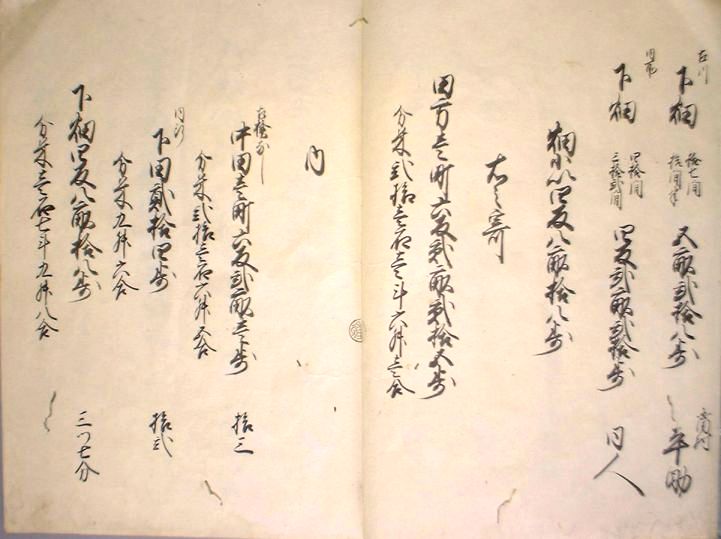 古川
下畑 拾七間 拾間半 五畝弐拾八歩 平助
同所
下畑 四拾間 三拾弐間 四反弐畝弐拾歩 同人
畑小以四反八畝拾八歩
右之寄
田方壱町六反弐畝弐拾五歩
分米弐拾壱石壱斗六升壱合
内
中田壱町六反弐畝壱歩 拾三
分米弐拾壱石六升五合
同所
下田弐拾四歩 拾弐
分米九升六合
下畑四反八畝拾八歩 三ツ七分
分米壱石七斗九升八合